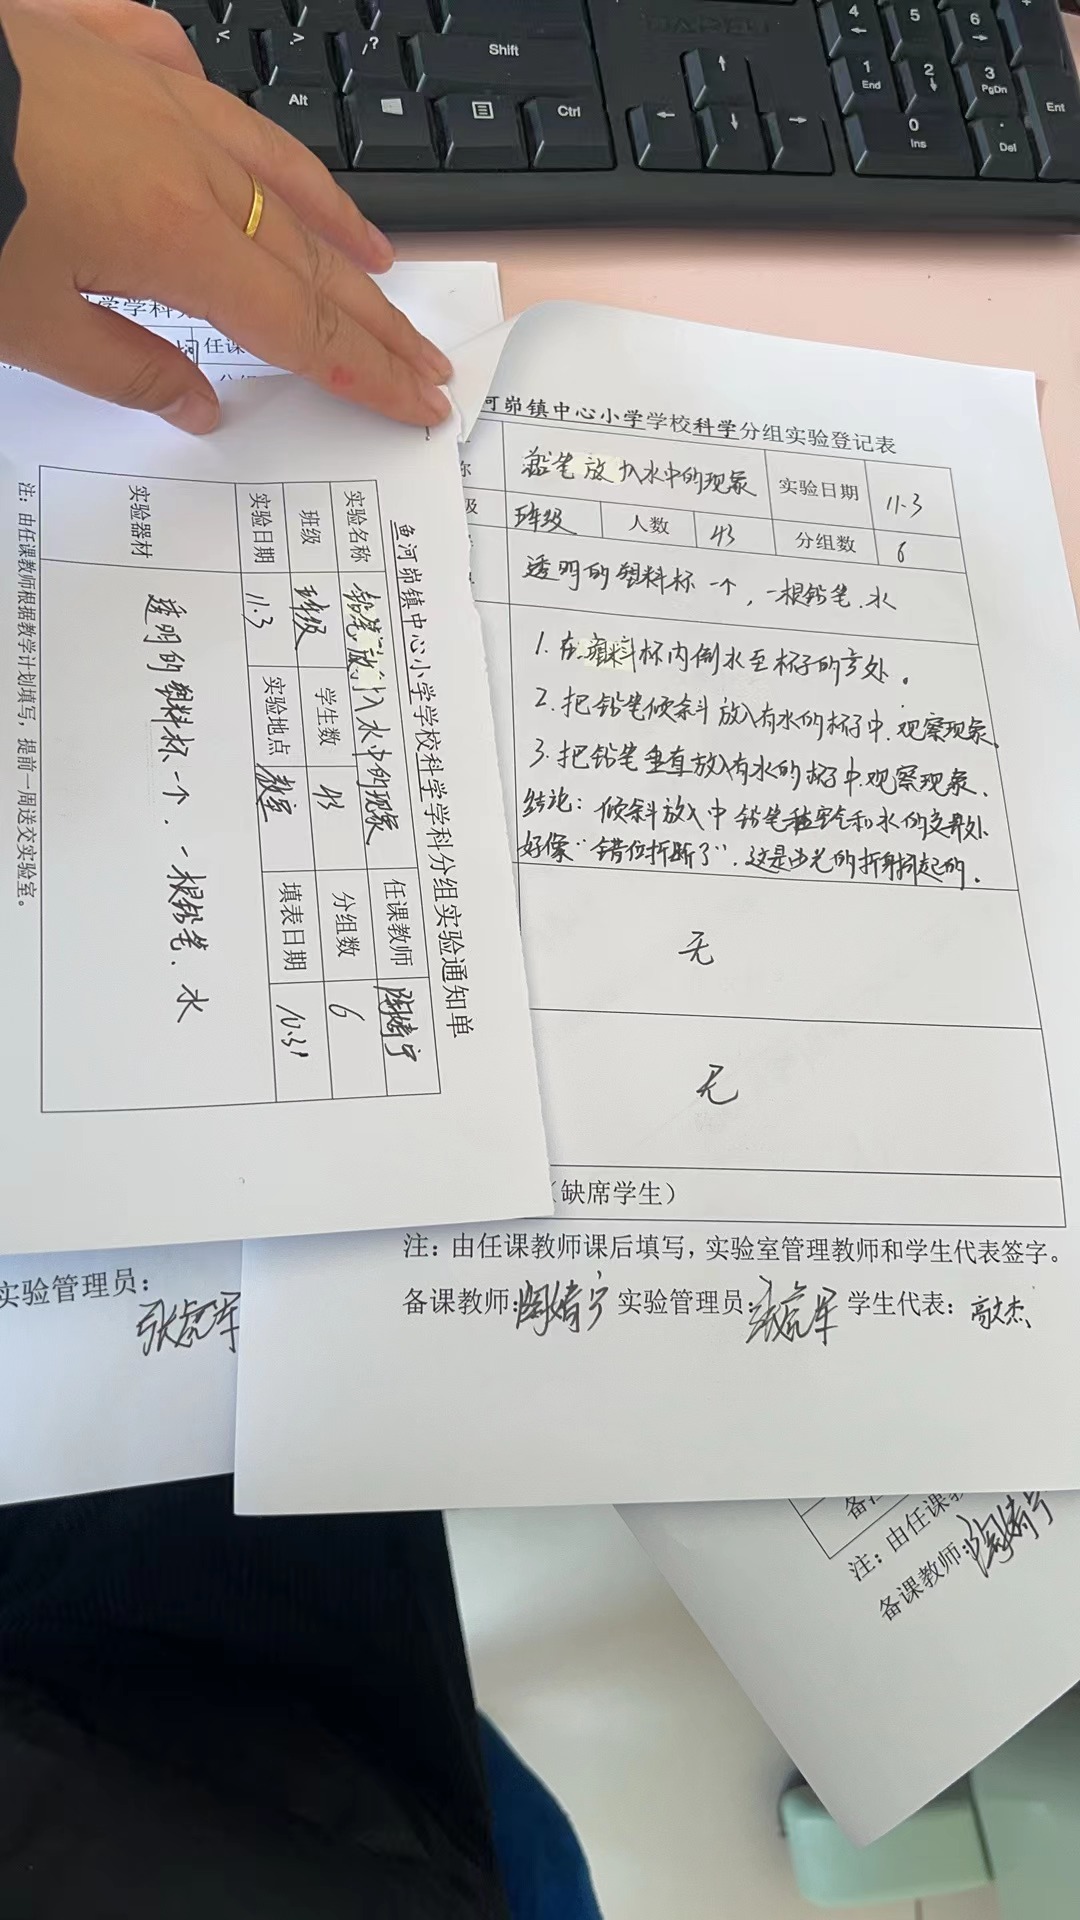 Shift
Alt
Ctrl
4
5
6
1
End
2
3
PgDn
0
Ins
Del
Ent
学学科
任课
河峁镇中心小学学校科学分组实验登记表
称
铅笔放入水中的现象
实验日期
11.3
级
班级
人数
43
分组数
6
透明的塑料杯一个,一根铅笔.水
1.在塑料杯内倒水至杯子的 处。
2.把铅笔倾斜放入有水的杯子中.观察现象。
3.把铅笔垂直放入有水的杯子中.观察现象.
结论:倾斜放入中铅笔 空气和水的交界处
好像"错位折断了".这是由光的折射引起的.
无
无
(缺席学生)
注:由任课教师课后填写,实验室管理教师和学生代表签字。
备课教师: 实验管理员: 学生代表:
鱼河峁镇中心小学学校科学学科分组实验通知单
实验名称
铅笔放入水中的现象
任课教师
班级
班级
学生数
43
分组数
6
实验日期
11.3
实验地点
教室
填表日期
10.31
实验器材
透明的塑料杯一个.一根铅笔.水
注:由任课教师根据教学计划填写,提前一周送交实验室。
实验管理员:
注:由任课教
备课教师: